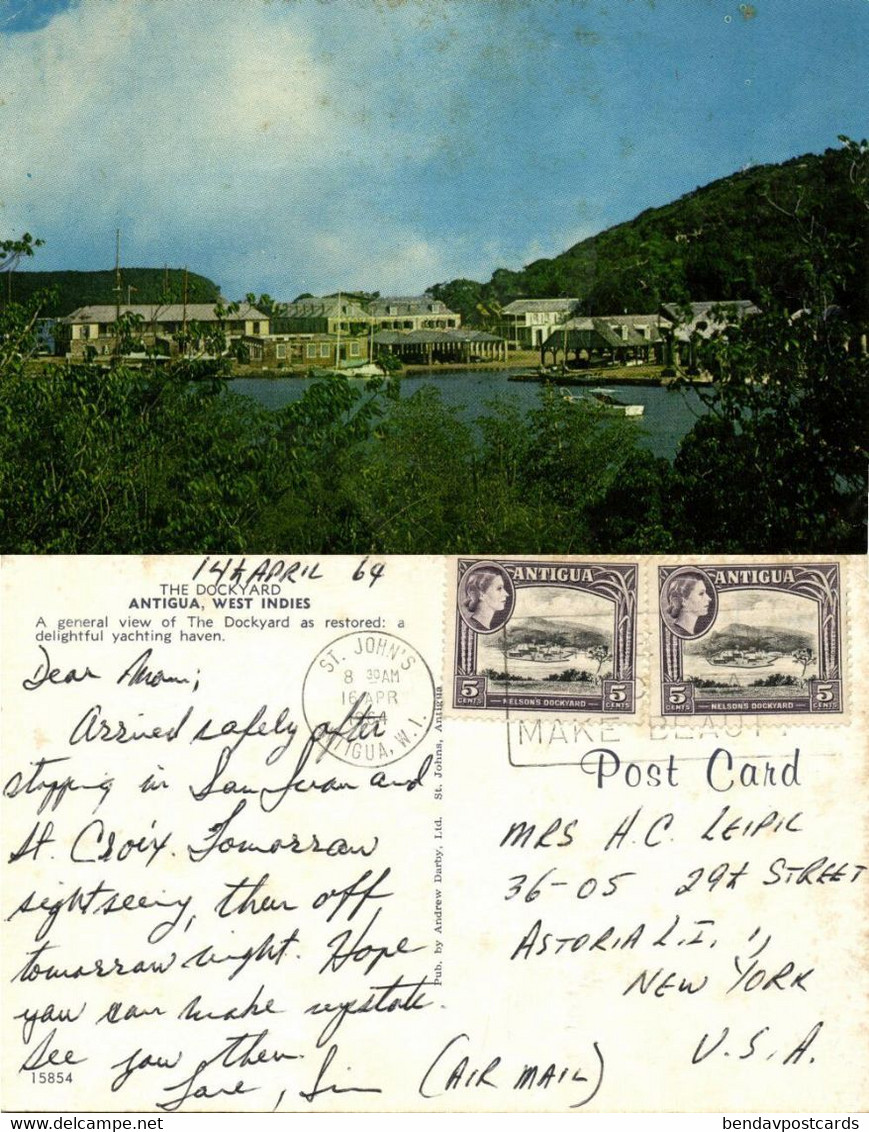 14th APRIL 64
THE DOCKYARD
ANTIGUA, WEST INDIES
A general view of The Dockyard as restored: a
delightful yachting haven.
Dear Mom;
Arrived safely after
stopping in San Juan and
St. Croix. Tomorrow
sightseeing, then off
tomorrow night. Hope
you can make upstate.
See you then.
Love, Jim
15854
ST. JOHN'S
8 30AM
16 APR
ANTIGUA, W. I.
Pub. by Andrew Darby, Ltd. St. Johns, Antigua
ANTIGUA
5 CENTS
NELSON'S DOCKYARD
5 CENTS
ANTIGUA
5 CENTS
NELSON'S DOCKYARD
5 CENTS
MAKE BEAUTY
Post Card
MRS H.C. LEIPIL
36-05 29th STREET
ASTORIA L.I. 1,
NEW YORK
U.S.A.
(AIR MAIL)
bendavpostcards